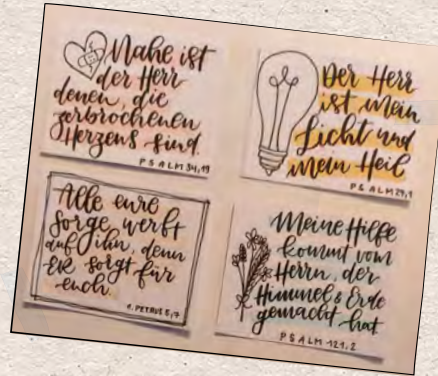 Nahe ist
der Herr
denen, die
zerbrochenen
Herzens sind.
PSALM 34,19
Der Herr
ist mein
Licht und
mein Heil
PSALM 27,1
Alle eure
Sorge werft
auf ihn, denn
ER sorgt für
euch.
1. PETRUS 5,7
Meine Hilfe
kommt vom
Herrn, der
Himmel & Erde
gemacht hat
PSALM 121,2